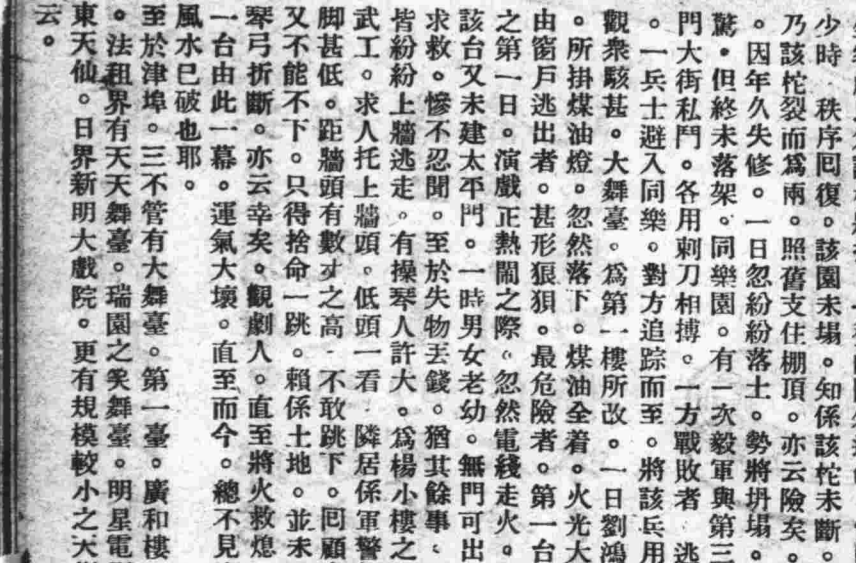 少時 秩序回復。該園未塌。知係該柁未斷。
乃該柁裂而爲兩。照舊支住棚頂。亦云險矣。
。因年久失修。一日忽紛紛落土。勢將坍塌。
驚。但終未落架。同樂園。有一次毅軍與第三
門大街私鬥。各用刺刀相搏。一方戰敗者 逃
。一兵士避入同樂。對方追踪而至。將該兵用
觀衆駭甚。大舞臺。爲第一樓所改。一日劉鴻
。所掛煤油燈。忽然落下。煤油全着。火光大
由窗戶逃出者。甚形狠狽。最危險者。第一台
之第一日。演戲正熱鬧之際。忽然電綫走火。
該台又未建太平門。一時男女老幼。無門可出
求救。慘不忍聞。至於失物丟錢。猶其餘事。
皆紛紛上牆逃走。有操琴人許大。爲楊小樓之
武工。求人托上牆頭。低頭一看 隣居係軍警
脚甚低。距牆頭有數丈之高 不敢跳下。回顧
又不能不下。只得捨命一跳。賴係土地。並未
琴弓折斷。亦云幸矣。觀劇人。直至將火救熄
一台由此一幕。運氣大壞。直至而今。總不見
風水已破也耶。
至於津埠。三不管有大舞臺。第一臺。廣和樓
。法租界有天天舞臺。瑞園之笑舞臺。明星電
東天仙。日界新明大戲院。更有規模較小之天
云。